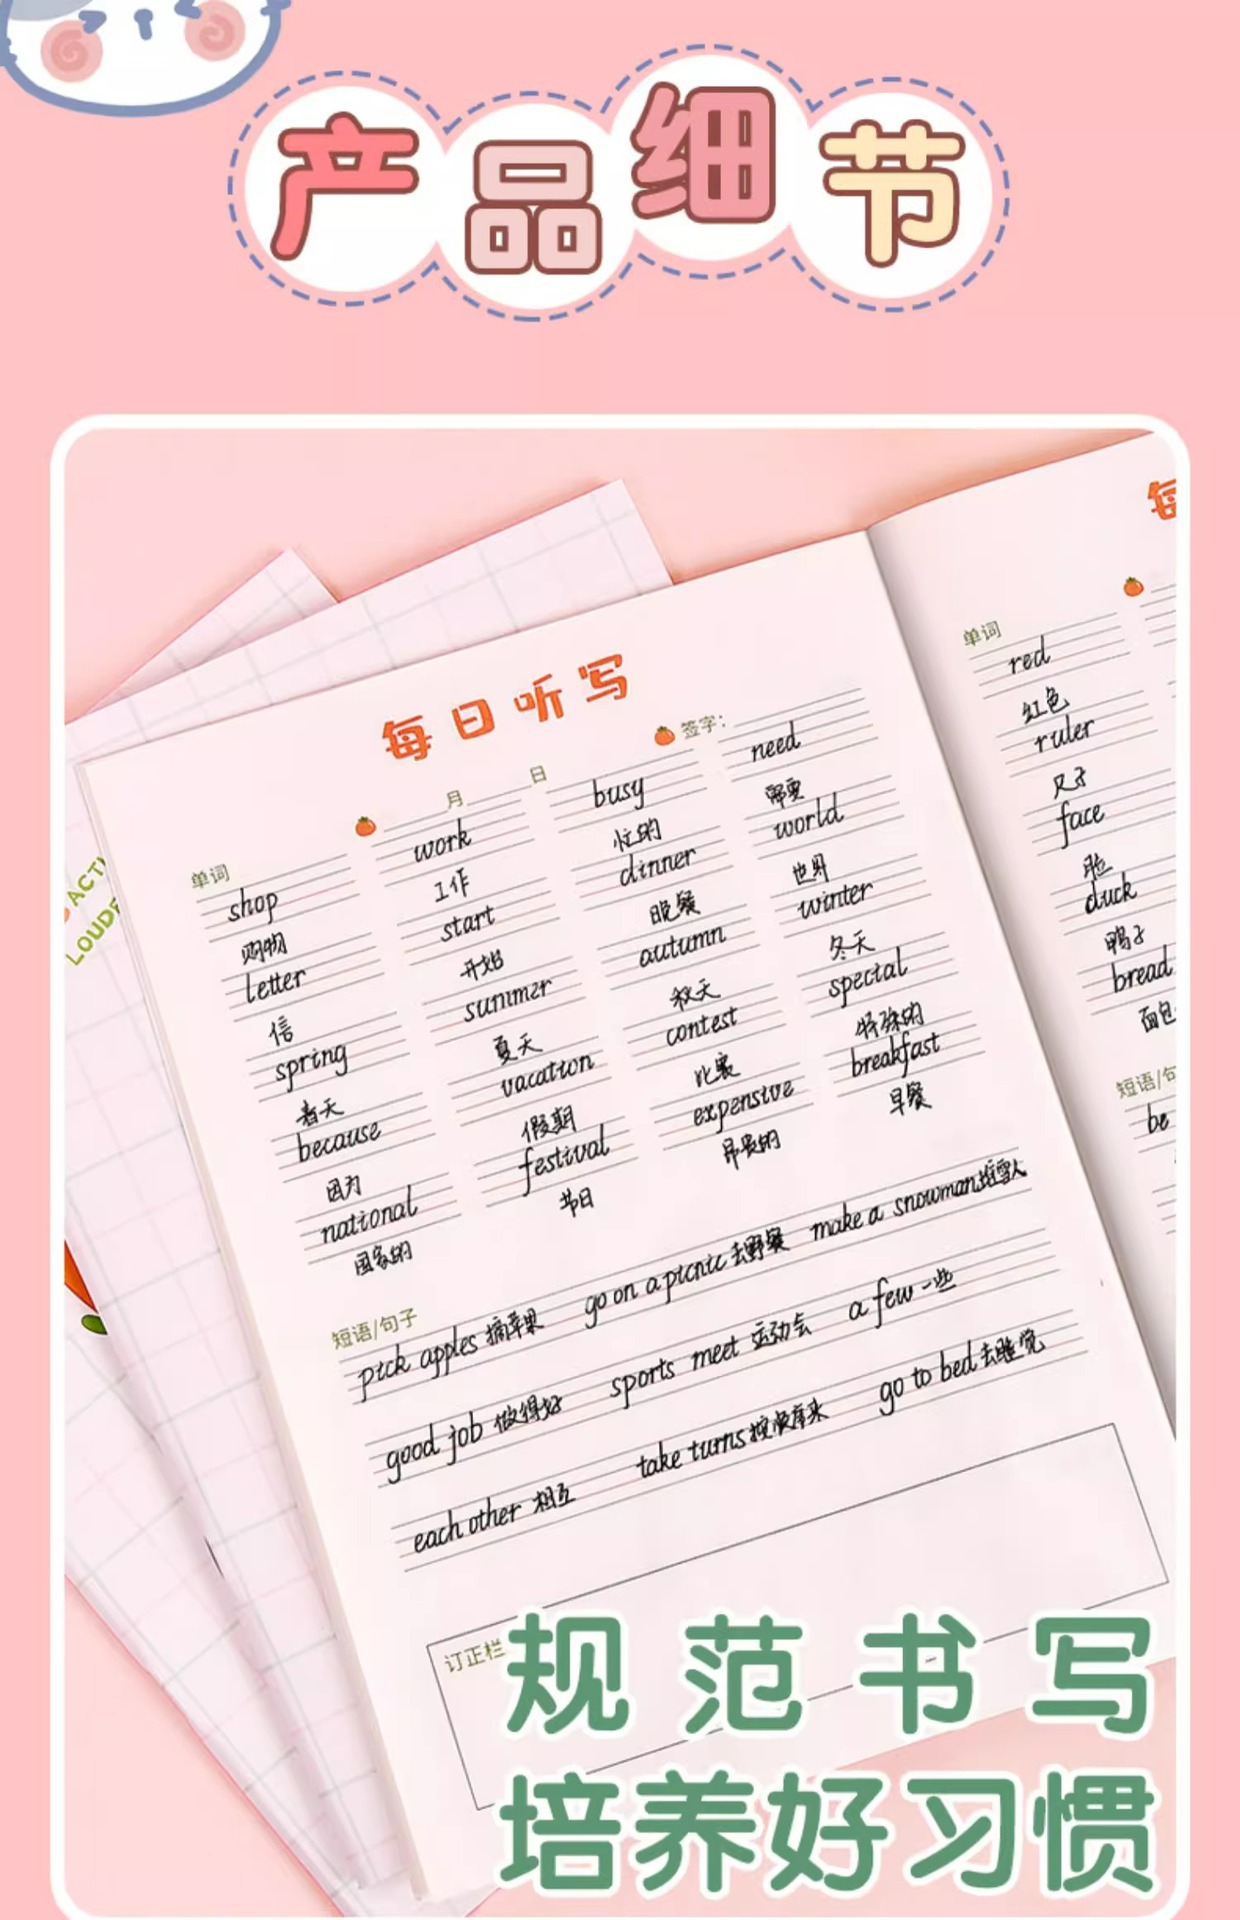 产品细节
每日听写
月 日 签字：
单词
shop work busy need
购物 工作 忙的 需要
letter start dinner world
信 开始 晚餐 世界
spring summer autumn winter
春天 夏天 秋天 冬天
because vacation contest special
因为 假期 比赛 特殊的
national festival expensive breakfast
国家的 节日 昂贵的 早餐
短语/句子
pick apples 摘苹果 go on a picnic 去野餐 make a snowman 堆雪人
good job 做得好 sports meet 运动会 a few 一些
each other 相互 take turns go to bed 去睡觉
订正栏
每
单词
red
红色
ruler
尺子
face
脸
duck
鸭子
bread
面包
短语/句
be
ACTI
LOUD
规范书写
培养好习惯